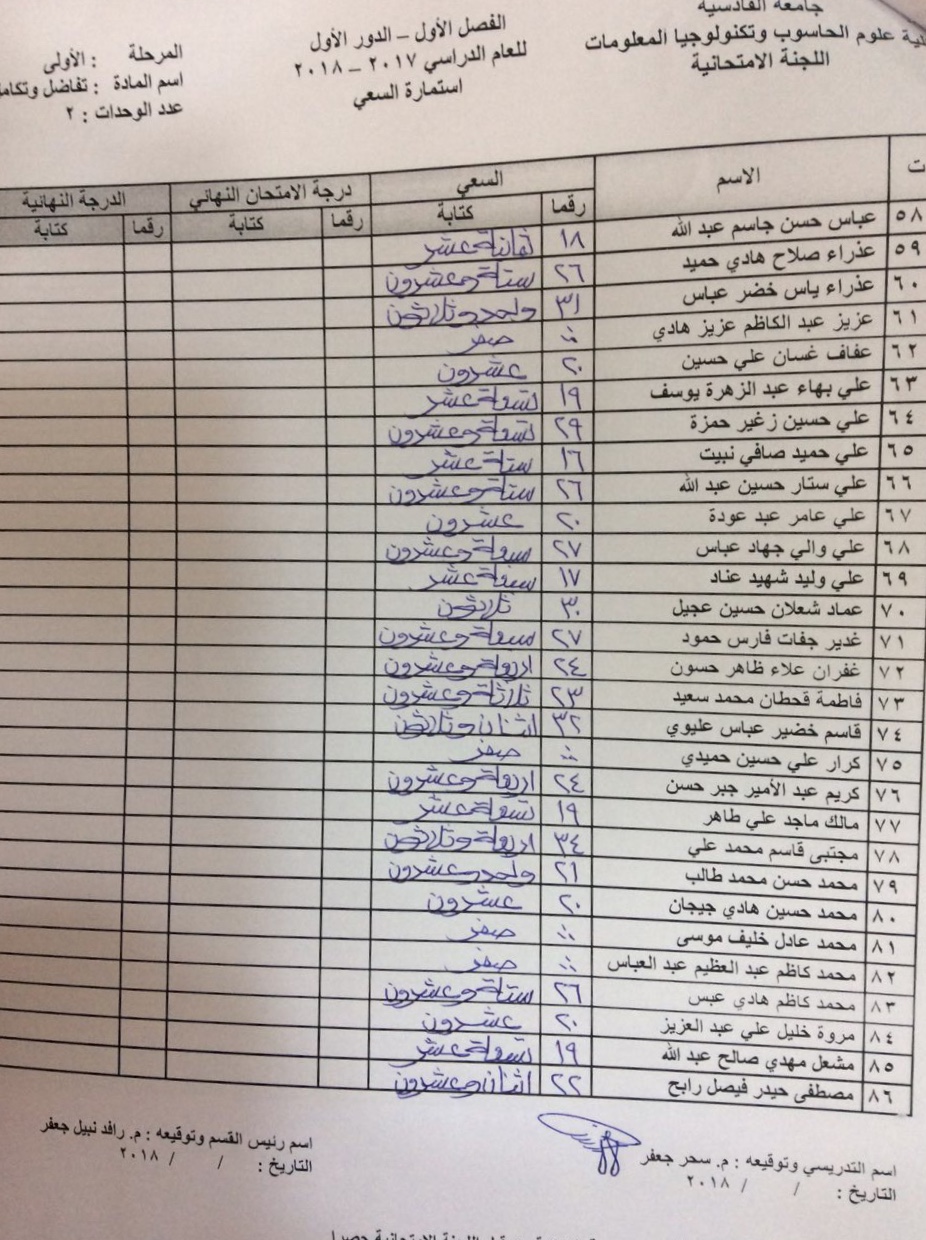 جامعة القادسية
علوم الحاسوب وتكنولوجيا المعلومات
اللجنة الامتحانية
الفصل الأول – الدور الأول
للعام الدراسي ٢٠١٧ – ٢٠١٨
استمارة السعي
المرحلة : الأولى
اسم المادة : تفاضل وتكامل
عدد الوحدات : ٢
ت الاسم السعي درجة الامتحان النهائي الدرجة النهائية
رقما كتابة رقما كتابة رقما كتابة
٥٨ عباس حسن جاسم عبد الله ١٨ ثمانية عشر
٥٩ عذراء صلاح هادي حميد ٢٦ ستة وعشرون
٦٠ عذراء ياس خضر عباس ٣١ واحد وثلاثون
٦١ عزيز عبد الكاظم عزيز هادي صفر
٦٢ عفاف غسان علي حسين ٢٠ عشرون
٦٣ علي بهاء عبد الزهرة يوسف ١٩ تسعة عشر
٦٤ علي حسين زغير حمزة ٢٩ تسعة وعشرون
٦٥ علي حميد صافي نبيت ١٦ ستة عشر
٦٦ علي ستار حسين عبد الله ٢٦ ستة وعشرون
٦٧ علي عامر عبد عودة ٢٠ عشرون
٦٨ علي والي جهاد عباس ٢٧ سبعة وعشرون
٦٩ علي وليد شهيد عناد ١٧ سبعة عشر
٧٠ عماد شعلان حسين عجيل ٣٠ ثلاثون
٧١ غدير جفات فارس حمود ٢٧ سبعة وعشرون
٧٢ غفران علاء ظاهر حسون ٢٤ اربعة وعشرون
٧٣ فاطمة قحطان محمد سعيد ٢٣ ثلاثة وعشرون
٧٤ قاسم خضير عباس عليوي ٣٢ اثنان وثلاثون
٧٥ كرار علي حسين حميدي صفر
٧٦ كريم عبد الأمير جبر حسن ٢٤ اربعة وعشرون
٧٧ مالك ماجد علي طاهر ١٩ تسعة عشر
٧٨ مجتبى قاسم محمد علي ٣٤ اربعة وثلاثون
٧٩ محمد حسن محمد طالب ٢١ واحد وعشرون
٨٠ محمد حسين هادي جيجان ٢٠ عشرون
٨١ محمد عادل خليف موسى صفر
٨٢ محمد كاظم عبد العظيم عبد العباس صفر
٨٣ محمد كاظم هادي عبس ٢٦ ستة وعشرون
٨٤ مروة خليل علي عبد العزيز ٢٠ عشرون
٨٥ مشعل مهدي صالح عبد الله ١٩ تسعة عشر
٨٦ مصطفى حيدر فيصل رابح ٢٢ اثنان وعشرون
اسم التدريسي وتوقيعه : م. سحر جعفر
التاريخ : / / ٢٠١٨
اسم رئيس القسم وتوقيعه : م. رافد نبيل جعفر
التاريخ : / / ٢٠١٨